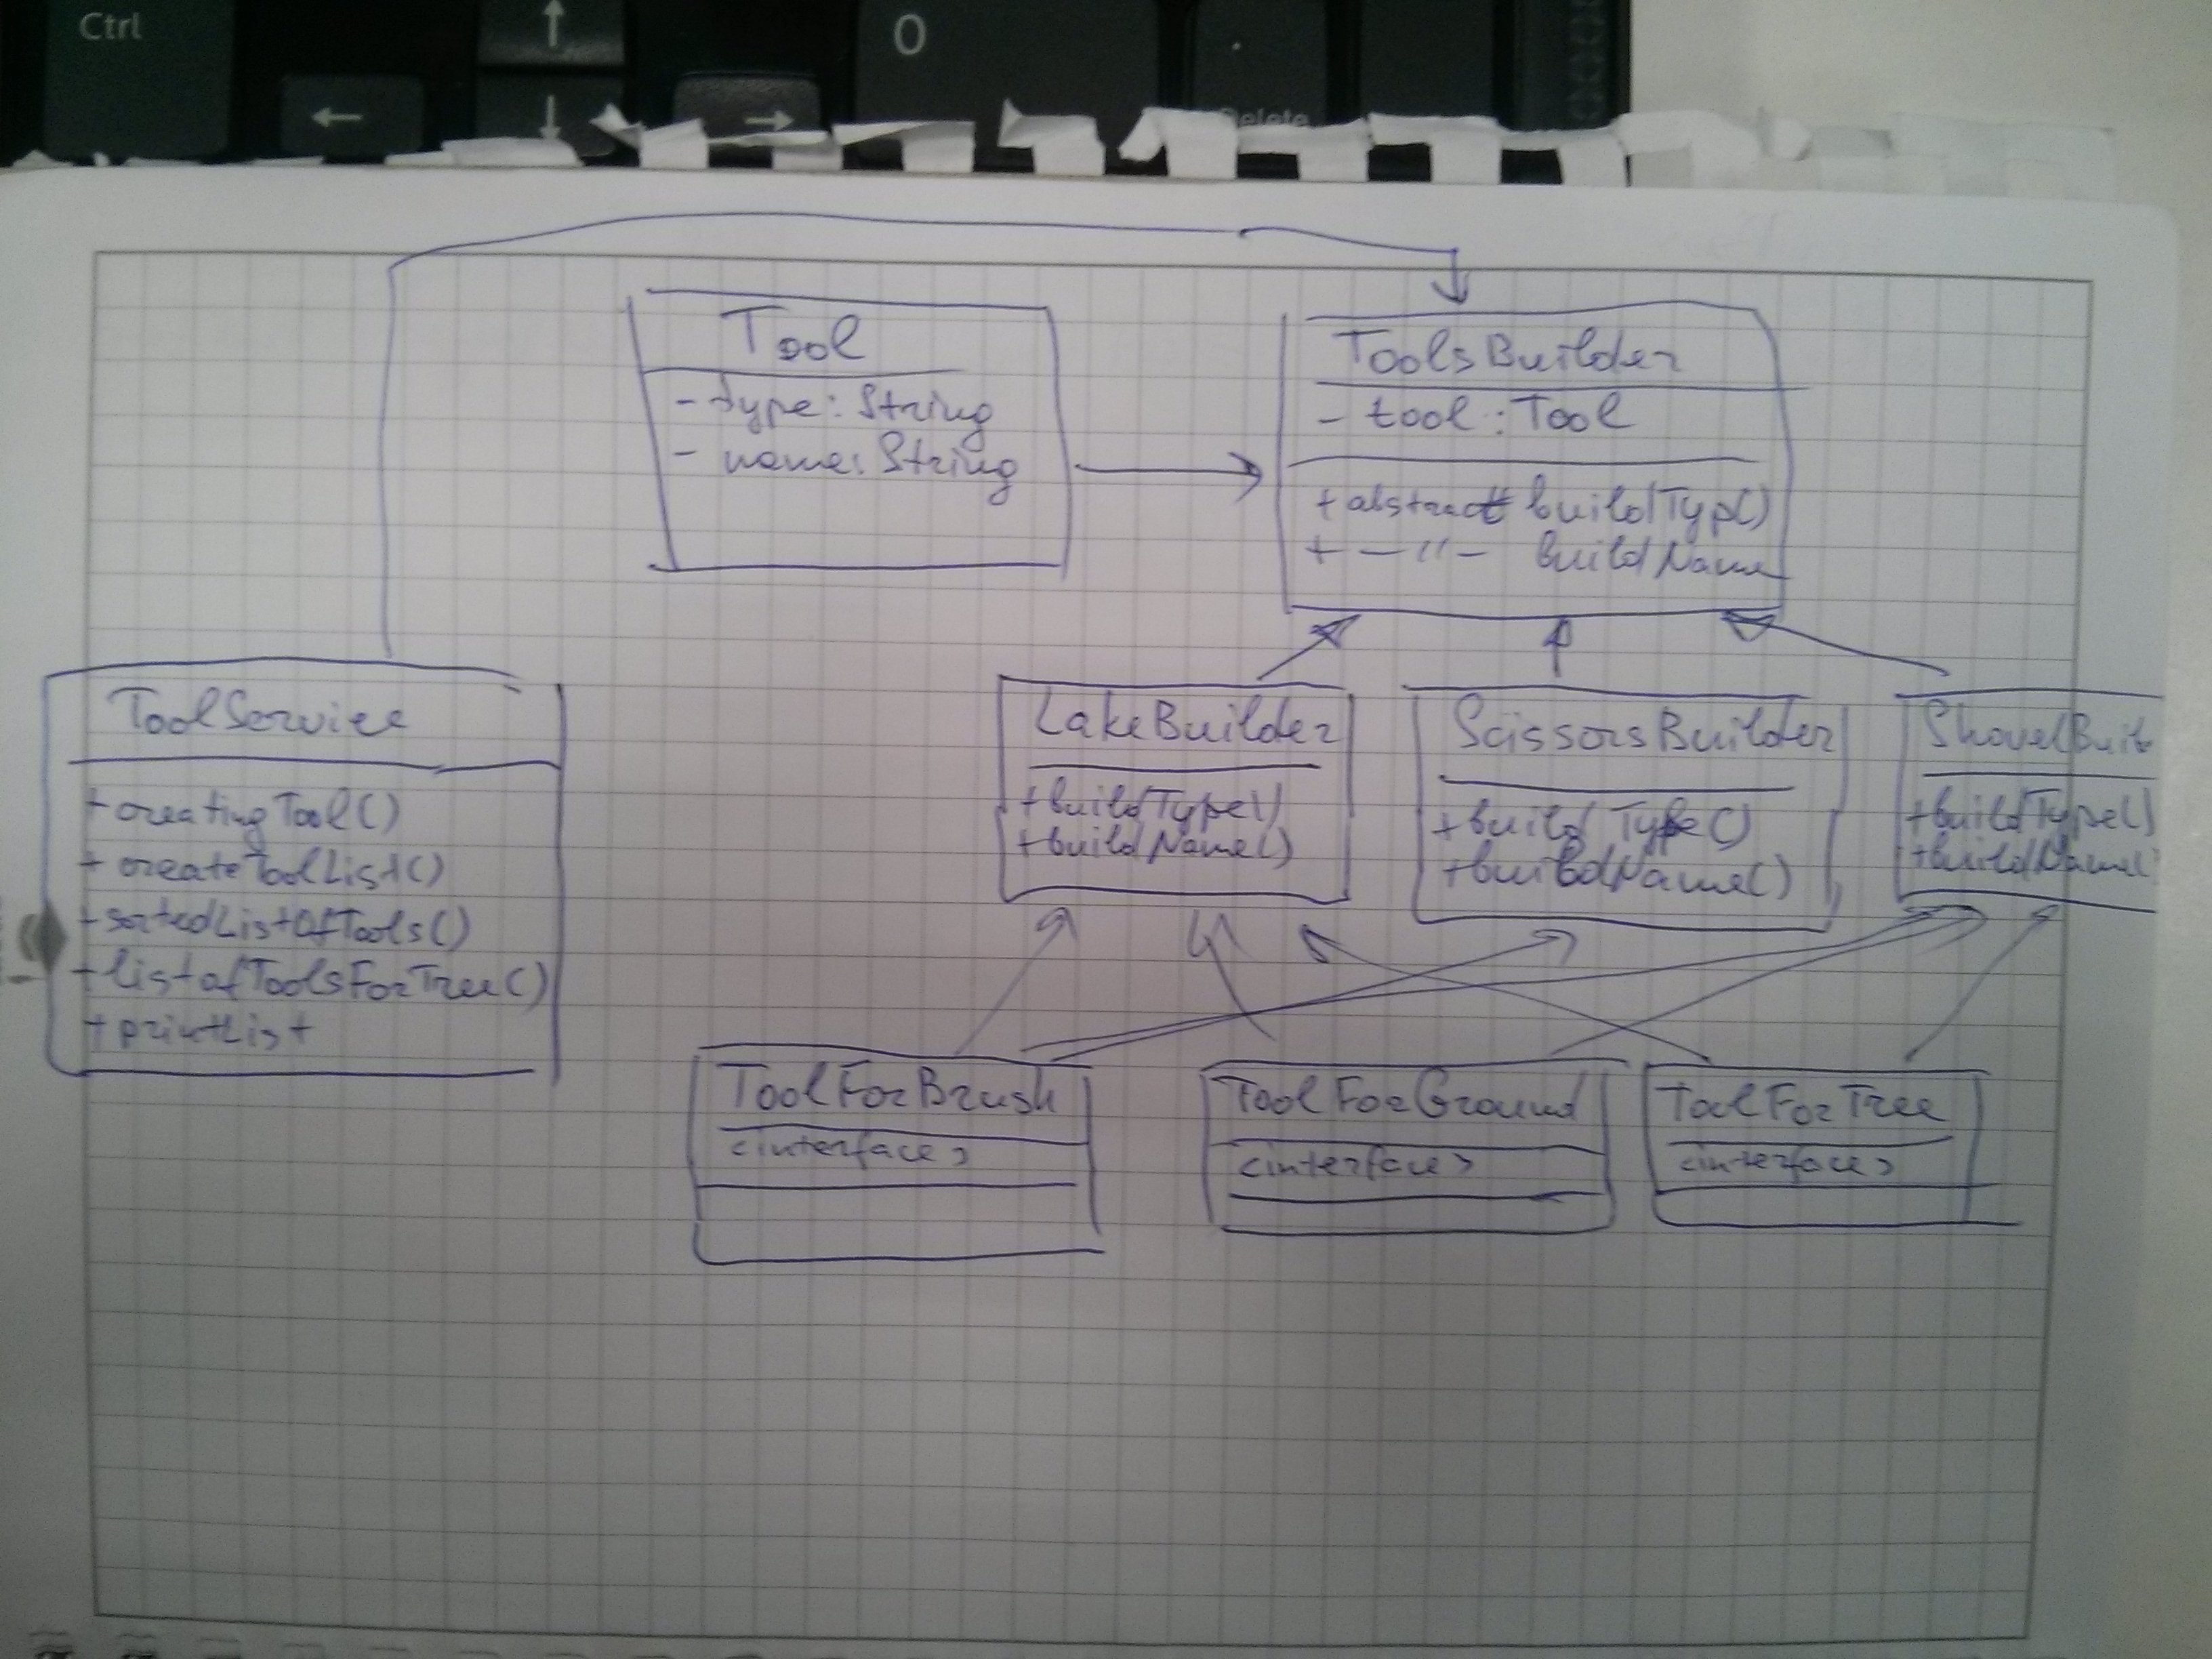 Ctrl
↑
0
.
←
↓
→
Delete
Tool
- type: String
- name: String
ToolsBuilder
- tool: Tool
+ abstract buildTyp()
+ — 〃 — buildName
ToolService
+ creatingTool()
+ createToolList()
+ sortedListOfTools()
+ listofToolsForTree()
+ printList
LakeBuilder
+ buildType()
+ buildName()
ScissorsBuilder
+ build Type()
+ buildName()
ShovelBuil
+ buildType()
+ buildName(
ToolForBrush
<interface>
ToolForGround
<interface>
ToolForTree
<interface>